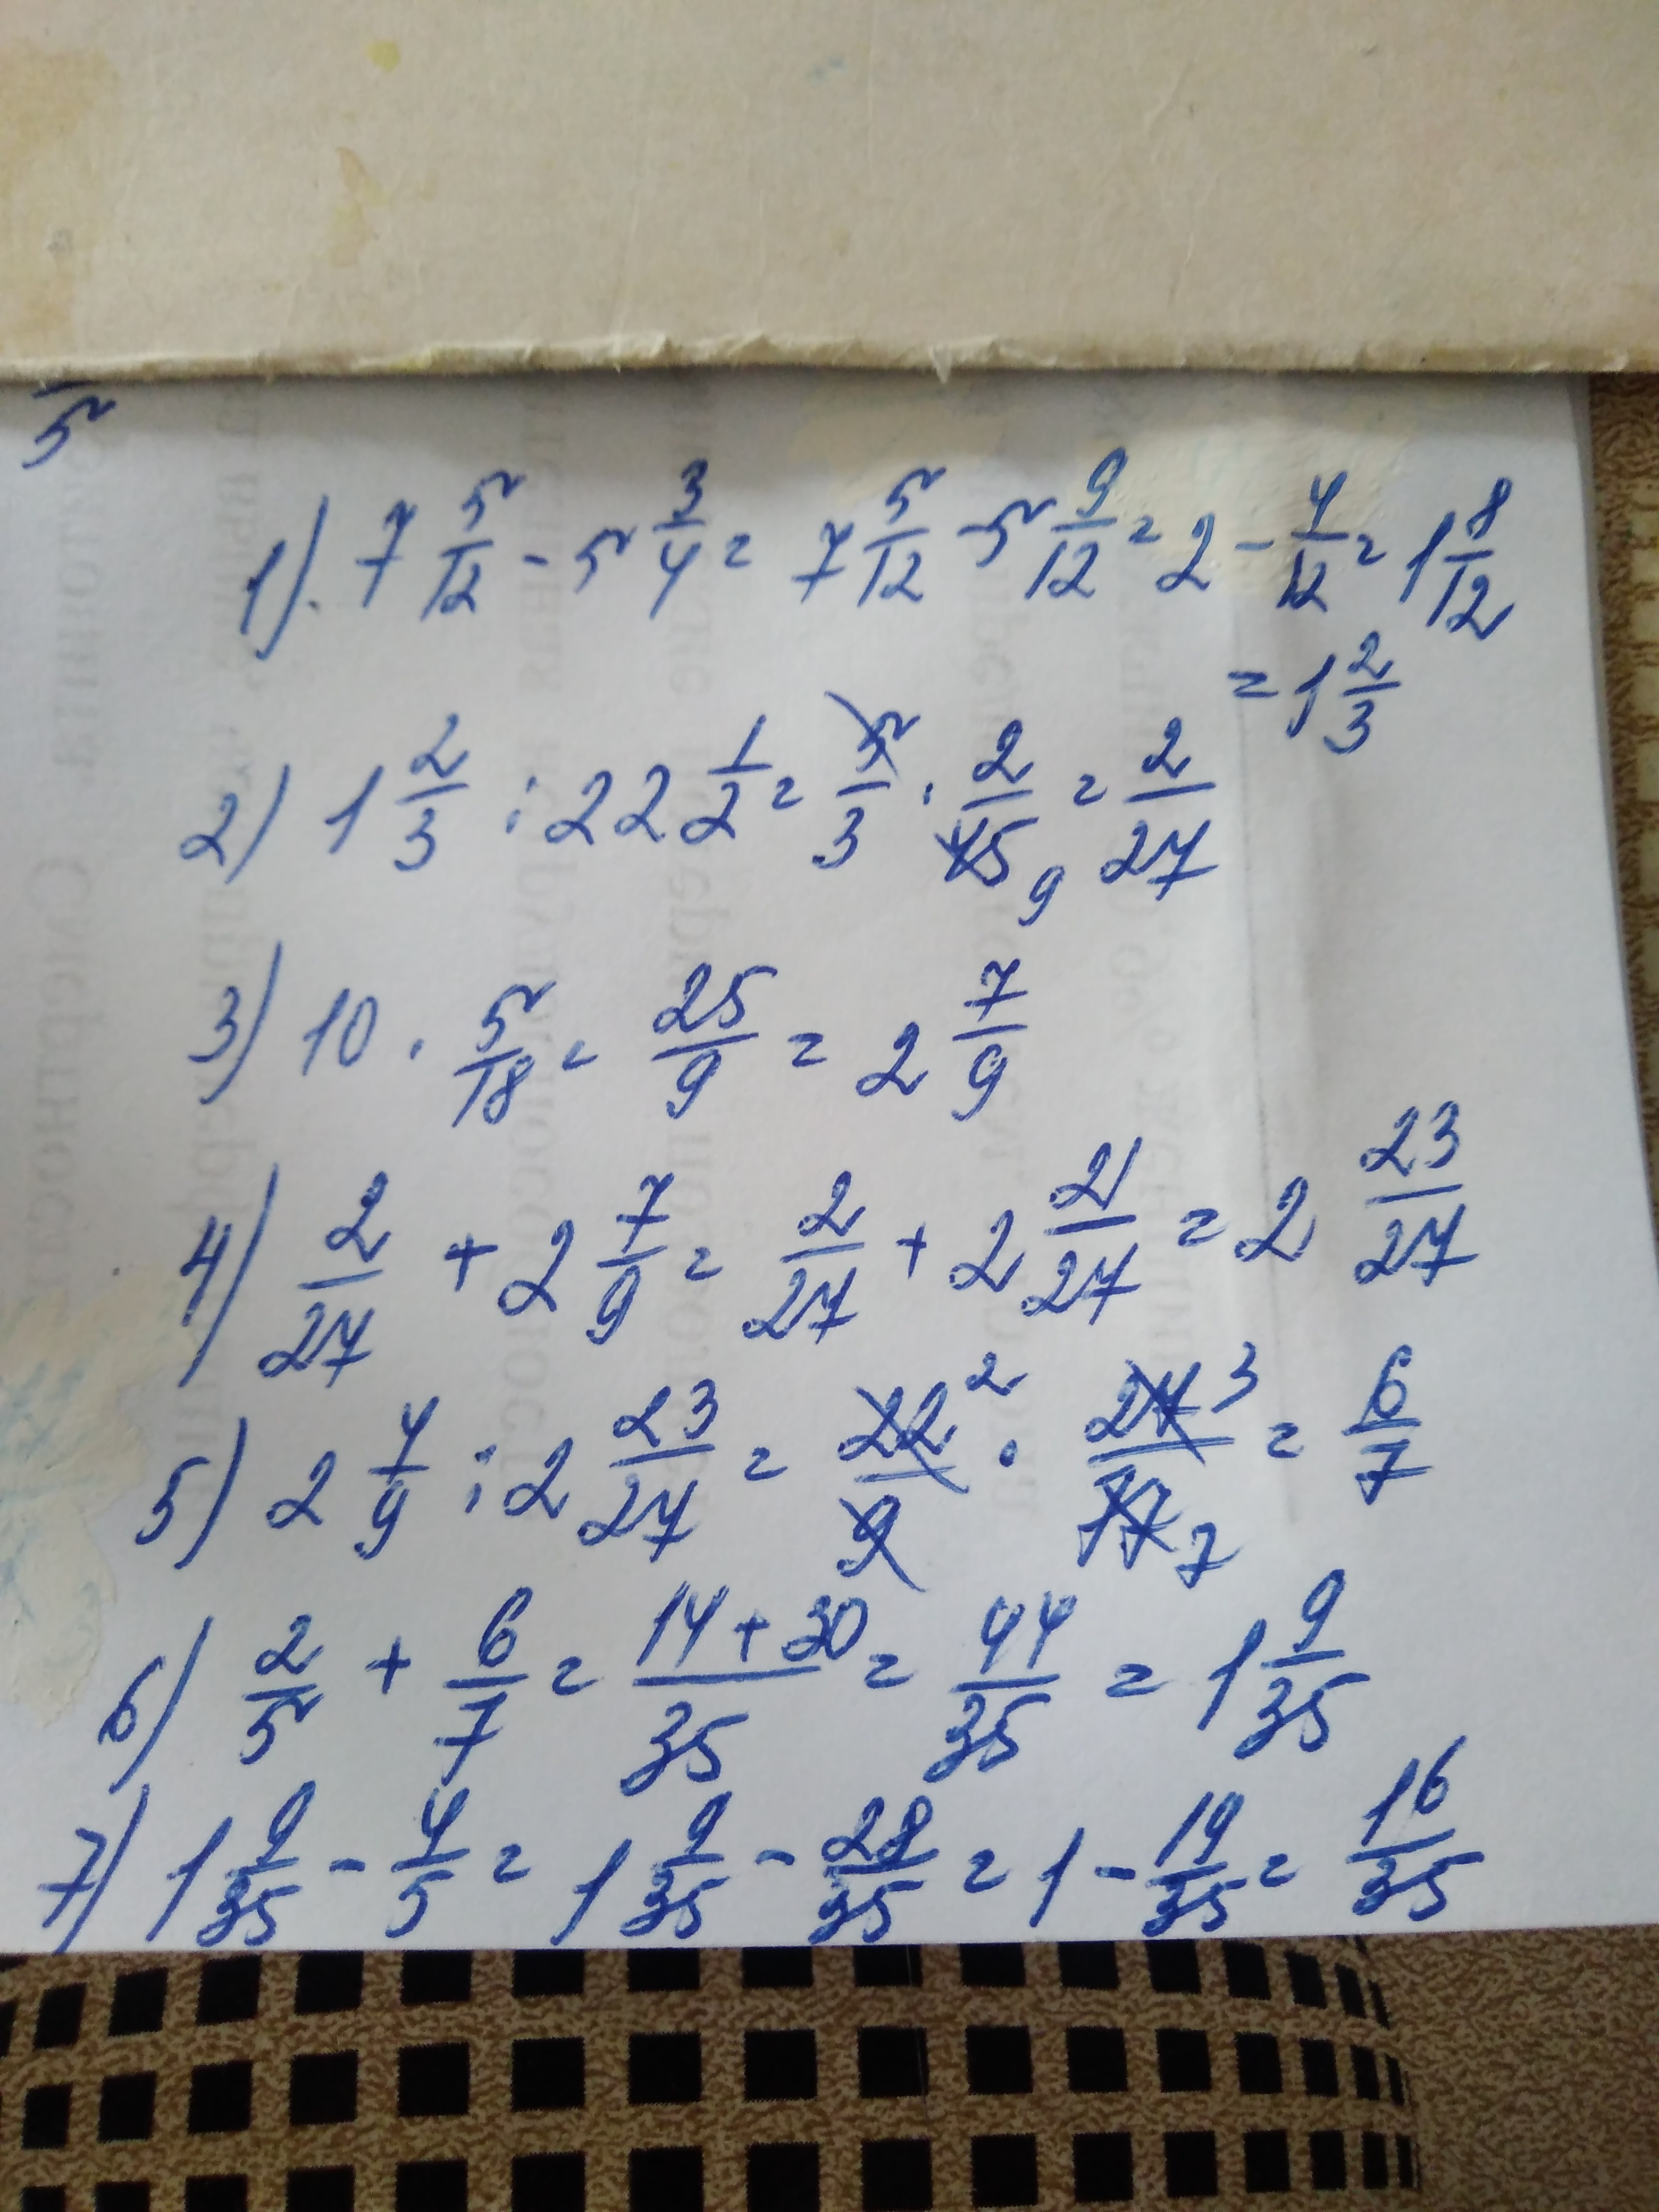 5
1). 7 5/12 - 5 3/4 = 7 5/12 - 5 9/12 = 2 - 4/12 = 1 8/12
= 1 2/3
2) 1 2/3 : 22 1/2 = 5/3 · 2/45 9 = 2/27
3) 10 · 5/18 = 25/9 = 2 7/9
4) 2/27 + 2 7/9 = 2/27 + 2 21/27 = 2 23/27
5) 2 4/9 : 2 23/27 = 22 2/9 · 27 3/77 7 = 6/7
6) 2/5 + 6/7 = 14+30/35 = 44/35 = 1 9/35
7) 1 9/35 - 4/5 = 1 9/35 - 28/35 = 1 - 19/35 = 16/35